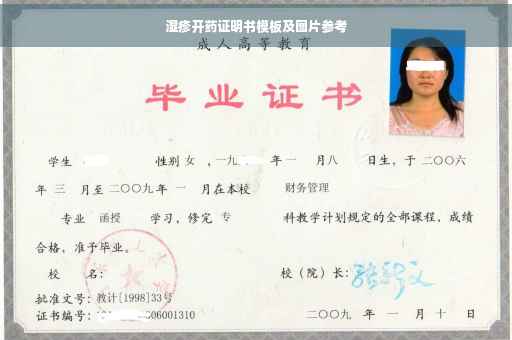 湿疹开药证明书模板及图片参考
成人高等教育
毕业证书
学生 性别 女 ，一九 年一 月八 日生，于二〇〇六
年 三 月至二〇〇九年 一 月在本校 财务管理
专业 函授 学习，修完 专 科教学计划规定的全部课程，成绩
合格，准予毕业。
校 名： 校（院）长：
批准文号：教计[1998]33号
证书编号： 06001310 二〇〇九 年 一 月 十 日